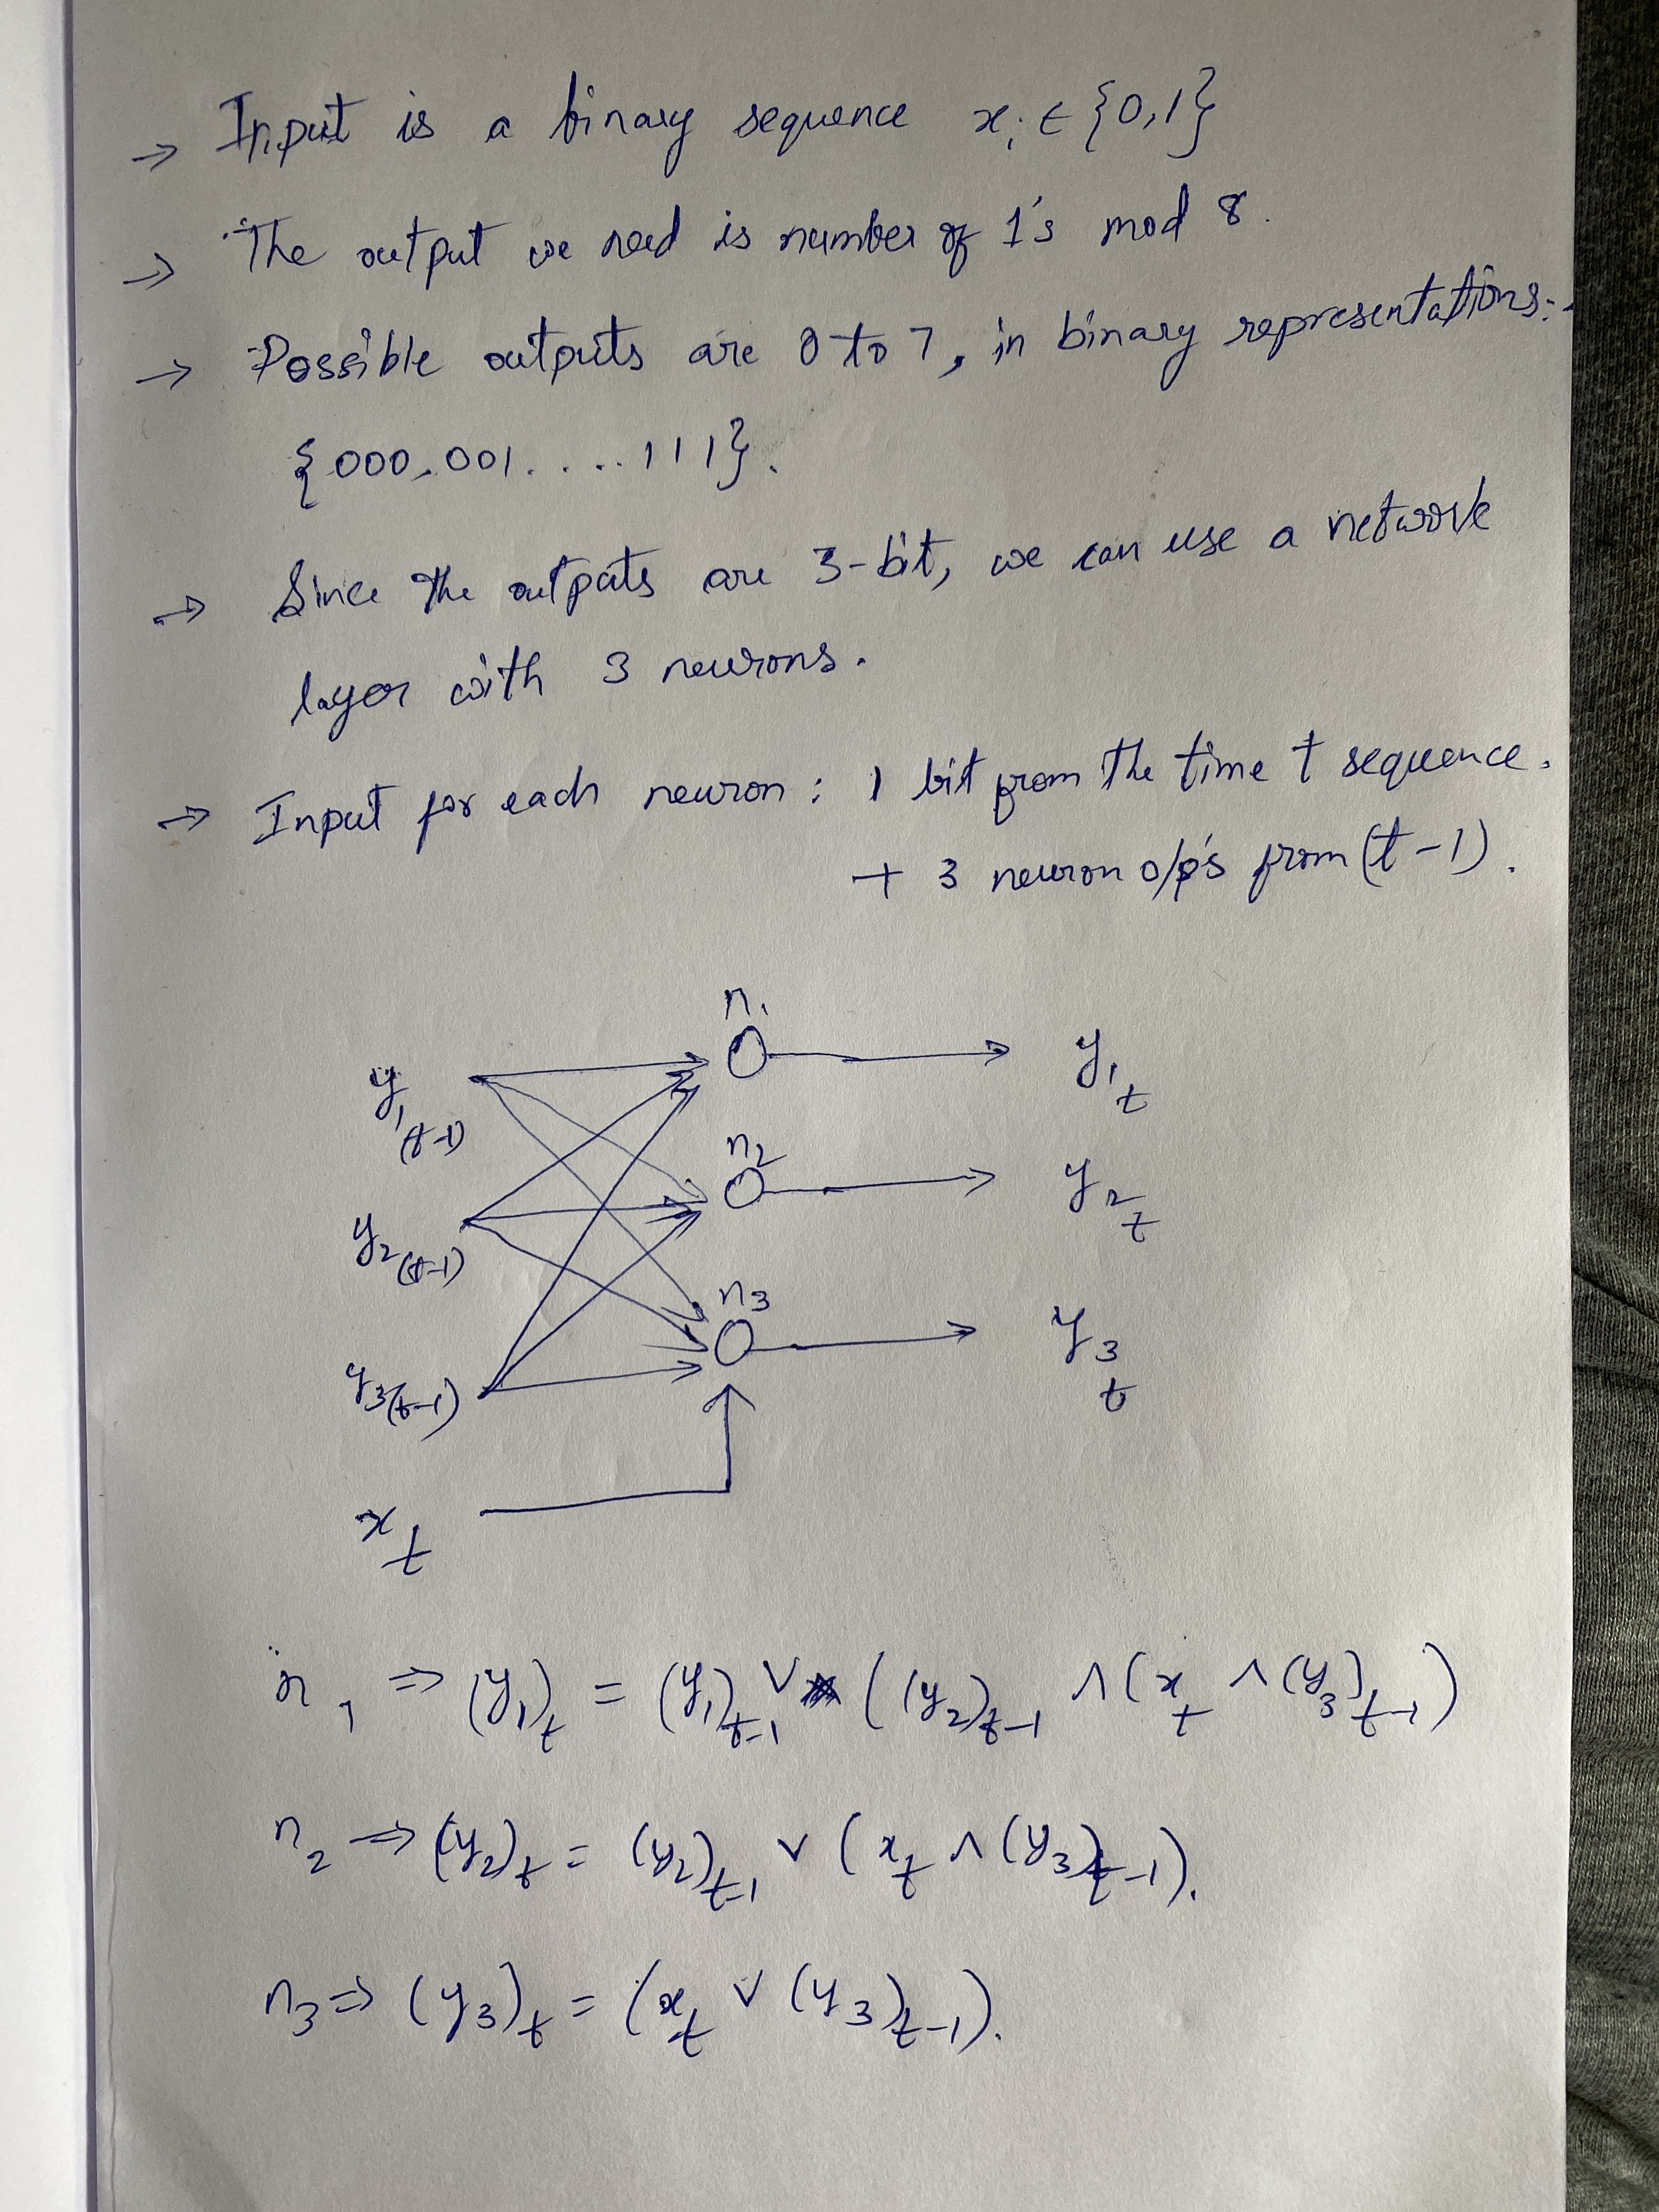 → Input is a binary sequence x_i ∈ {0,1}
→ The output we need is number of 1's mod 8.
→ Possible outputs are 0 to 7, in binary representations:-
{000,001.....111}.
→ Since the outputs are 3-bit, we can use a network
layer with 3 neurons.
→ Input for each neuron : 1 bit from the time t sequence.
+ 3 neuron o/p's from (t-1).
n_1
y_1(t-1)
y_1_t
n_2
y_2(t-1)
y_2_t
n_3
y_3(t-1)
y_3_t
x_t
n_1 ⇒ (y_1)_t = (y_1)_t-1 ∨ ((y_2)_t-1 ∧ (x_t ∧ (y_3)_t-1)
n_2 ⇒ (y_2)_t = (y_2)_t-1 ∨ (x_t ∧ (y_3)_t-1).
n_3 ⇒ (y_3)_t = (x_t ∨ (y_3)_t-1).